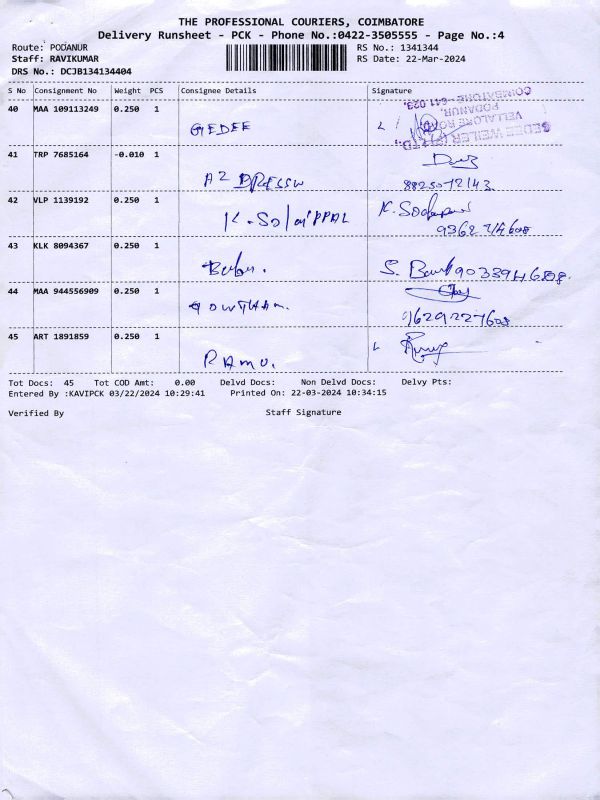 THE PROFESSIONAL COURIERS, COIMBATORE
Delivery Runsheet - PCK - Phone No.:0422-3505555 - Page No.:4
Route: PODANUR
RS No.: 1341344
Staff: RAVIKUMAR
RS Date: 22-Mar-2024
DRS No.: DCJB134134404
S No Consignment No Weight PCS Consignee Details Signature
40 MAA 109113249 0.250 1 GEDEE
GEDEE WEILER (P) LTD.,
VELLALORE ROAD,
PODANUR,
COIMBATORE - 641 023.
41 TRP 7685164 -0.010 1 A2
42 VLP 1139192 0.250 1
43 KLK 8094367 0.250 1 Babu. S.
44 MAA 944556909 0.250 1 GOWTHAM.
45 ART 1891859 0.250 1 RAMU.
Tot Docs: 45 Tot COD Amt: 0.00 Delvd Docs: Non Delvd Docs: Delvy Pts:
Entered By :KAVIPCK 03/22/2024 10:29:41 Printed On: 22-03-2024 10:34:15
Verified By Staff Signature